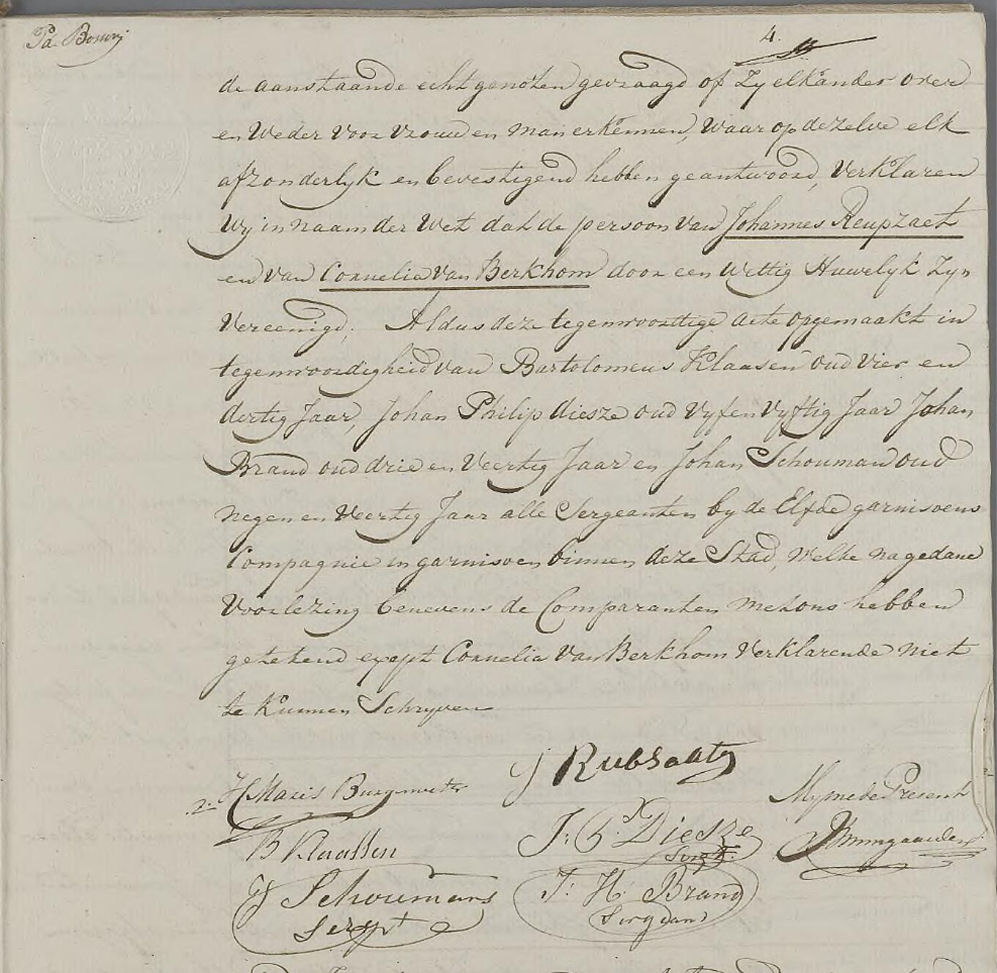 4.
de aanstaande echtgenoten gevraagd of Zy elkander over
en Weder voor Vrouw en man erkennen, Waar op dezelve elk
afzonderlyk en bevestigend hebben geantwoord, Verklaren
Wy in naam der Wet dat de persoon van Johannes Reupzaet
en van Cornelia van Berkhom door een Wettig Huwelyk Zyn
Vereenigd. Aldus deze tegenwoordige acte opgemaakt in
tegenwoordigheid van Bartolomeus Klaasen oud Vier en
dertig Jaar, Johan Philip diesze oud Vyf en Vyftig Jaar Johan
Brand oud drie en Veertig Jaar en Johan Schouman oud
negen en Veertig Jaar alle Sergeanten by de Elfde garnisoens
Compagnie in garnisoen binnen deze Stad, Welke na gedane
Voorlezing benevens de Comparanten met ons hebben
getekend exept Cornelia Van Berkhom Verklarende niet
te Kunnen Schryven
J Rubsaatz
H Maris Burgemeester
My mede Present
B Klaassen
J: P: Diesze
Sergt.
J Schoumans
Sergt
J: H: Brand
Sergeant